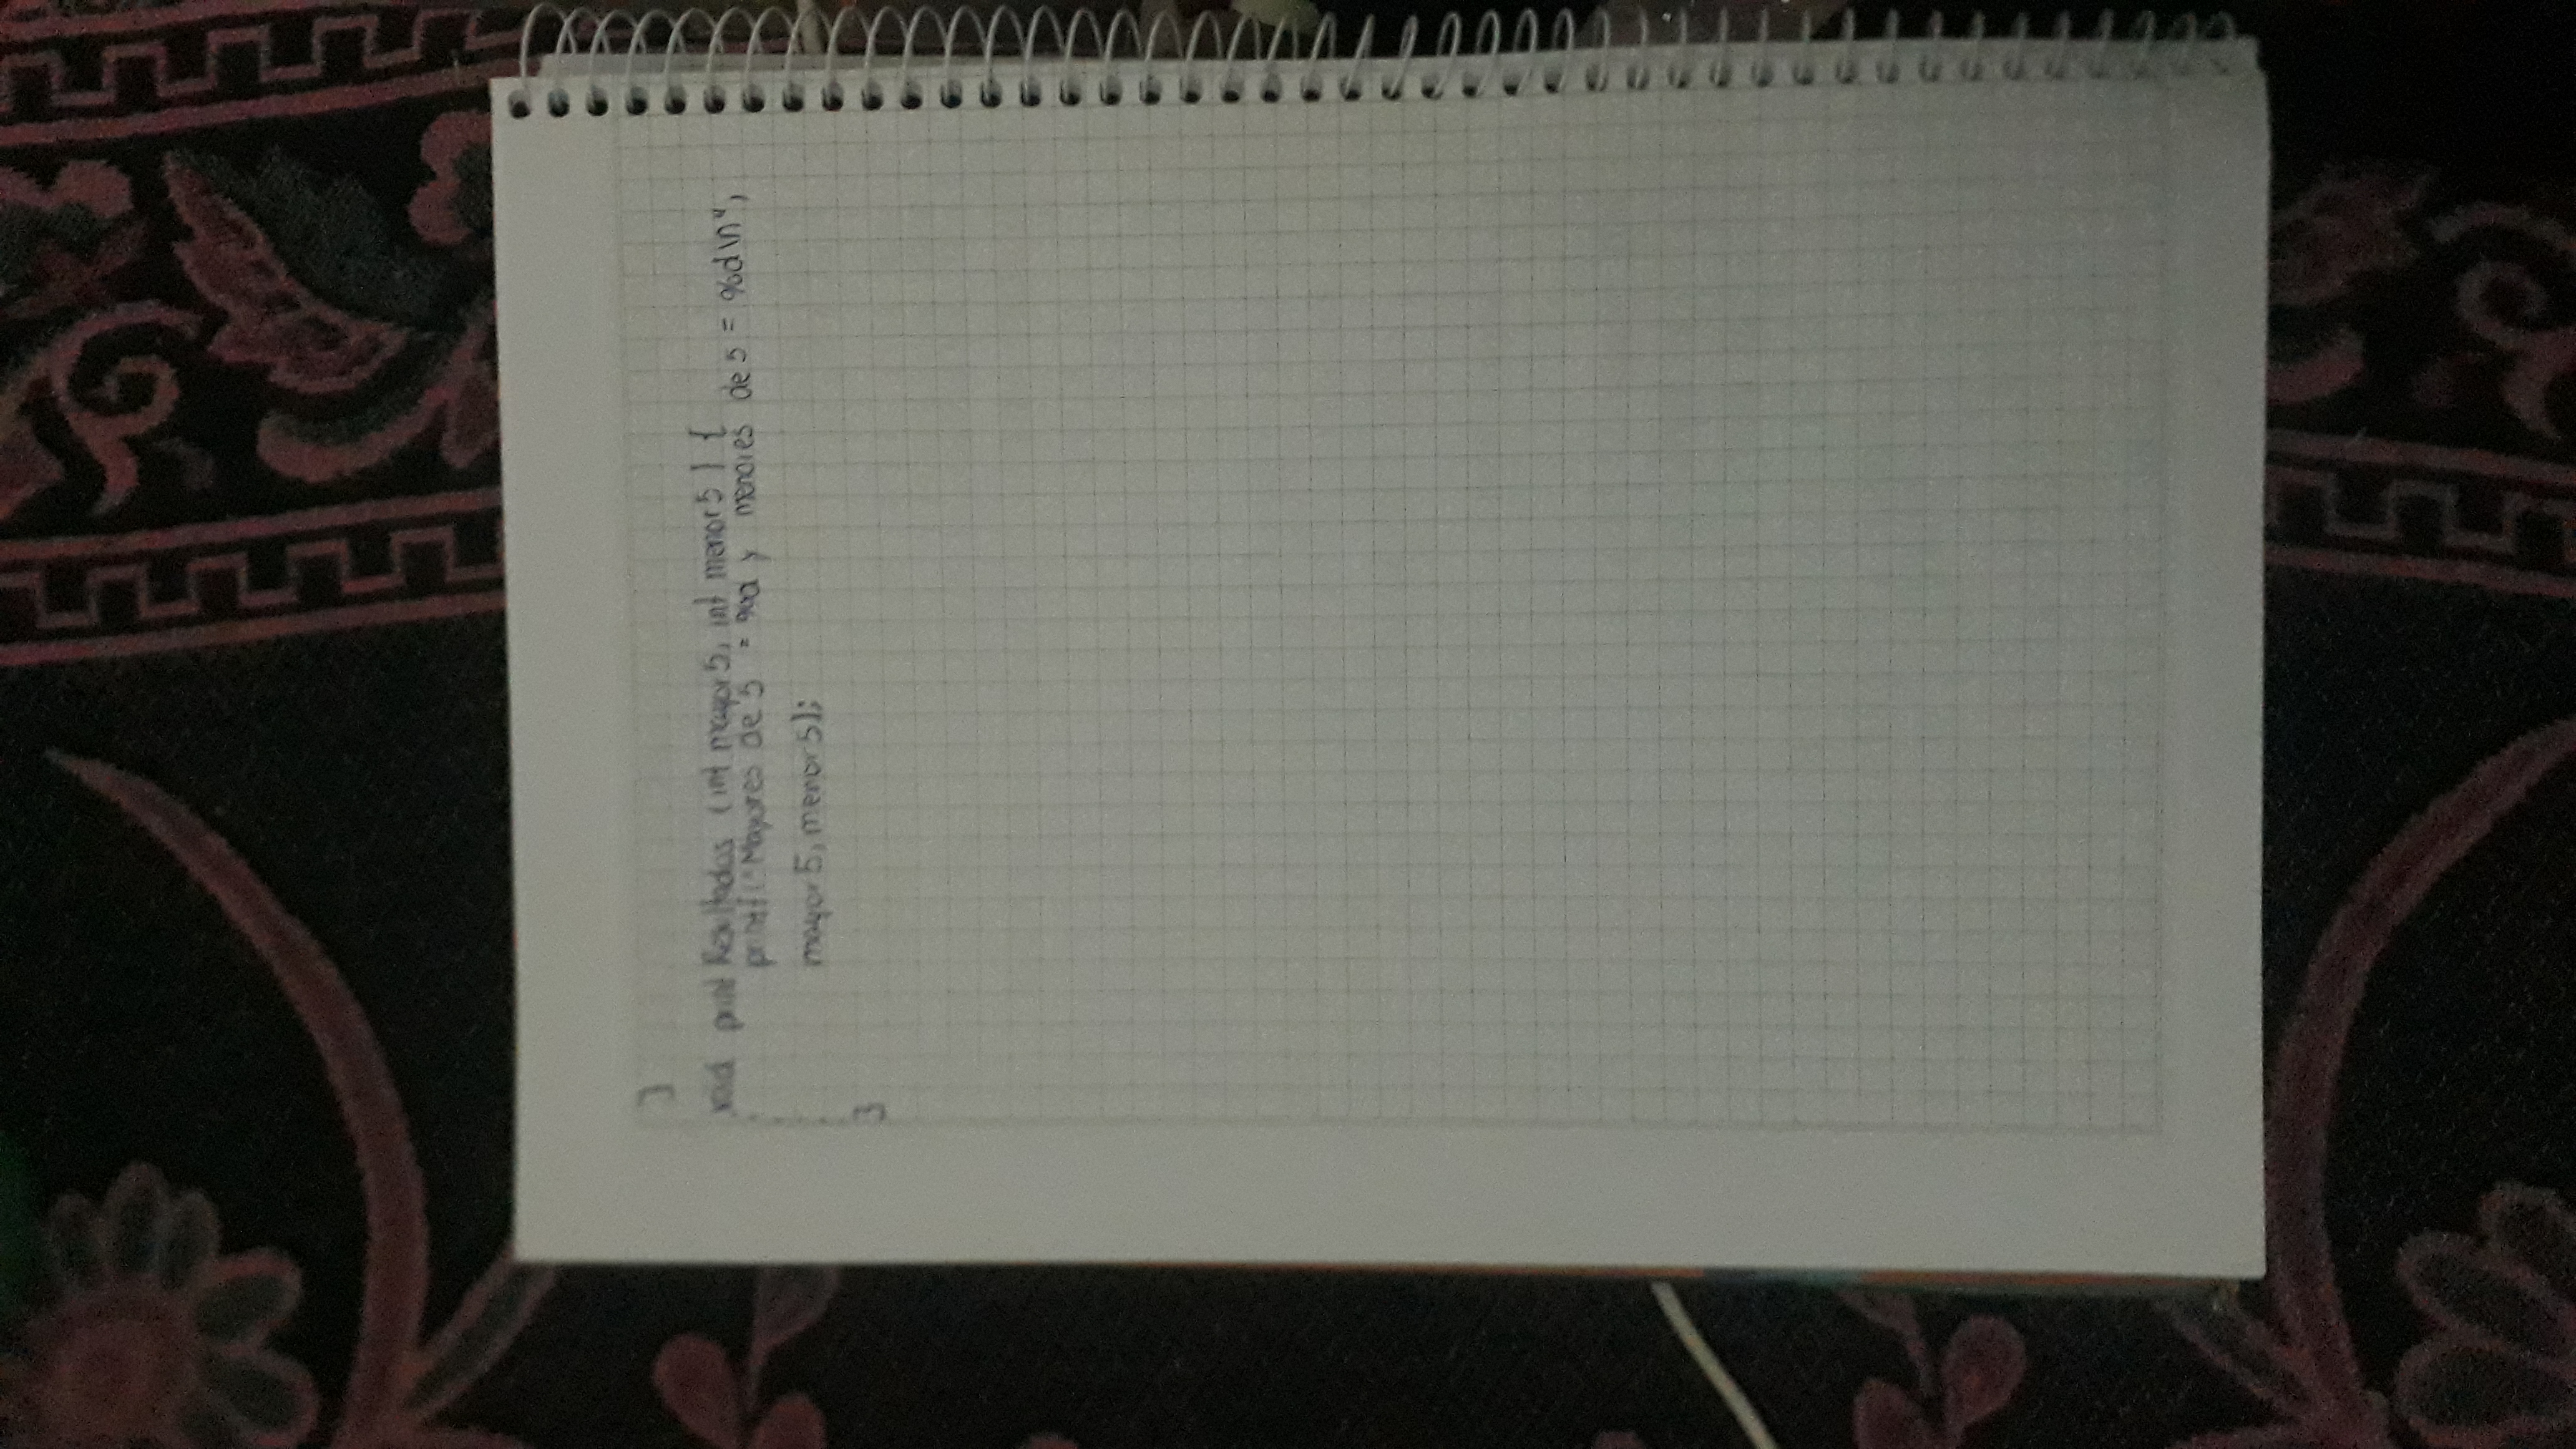 }
void print Resultados (int mayor5, int menor5) {
printf("Mayores de 5 = %d y menores de 5 = %d\n",
mayor5, menor5);
}